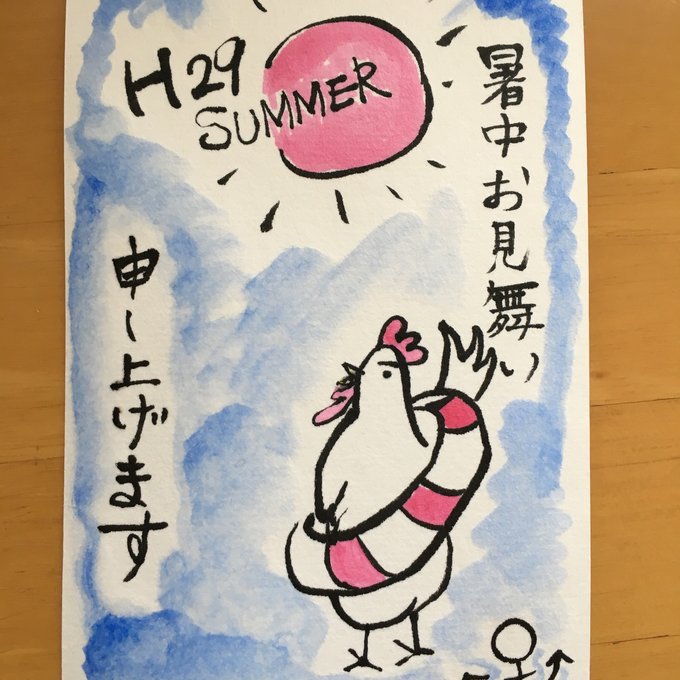 暑中お見舞い
申し上げます
H29
SUMMER